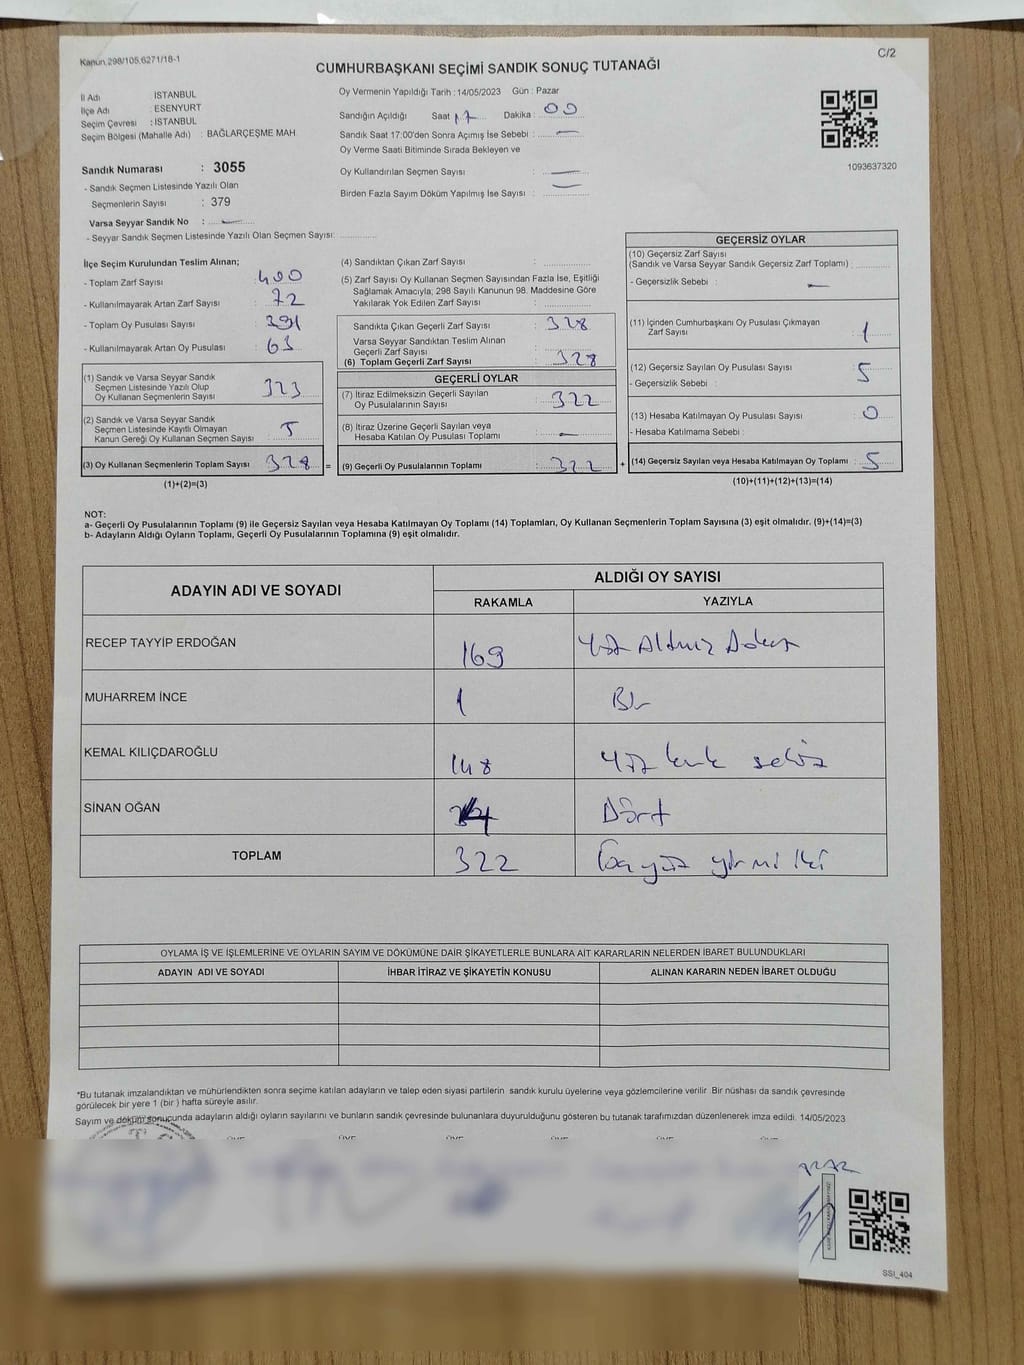 Kanun.298/105,6271/18-1
C/2
CUMHURBAŞKANI SEÇİMİ SANDIK SONUÇ TUTANAĞI
İl Adı İSTANBUL
İlçe Adı : ESENYURT
Seçim Çevresi : İSTANBUL
Seçim Bölgesi (Mahalle Adı) : BAĞLARÇEŞME MAH.
Sandık Numarası : 3055
- Sandık Seçmen Listesinde Yazılı Olan
Seçmenlerin Sayısı : 379
Varsa Seyyar Sandık No : —
- Seyyar Sandık Seçmen Listesinde Yazılı Olan Seçmen Sayısı:
Oy Vermenin Yapıldığı Tarih : 14/05/2023 Gün : Pazar
Sandığın Açıldığı Saat 17 Dakika : 00
Sandık Saat 17:00'den Sonra Açımış İse Sebebi : —
Oy Verme Saati Bitiminde Sırada Bekleyen ve
Oy Kullandırılan Seçmen Sayısı : —
Birden Fazla Sayım Döküm Yapılmış İse Sayısı : —
1093637320
İlçe Seçim Kurulundan Teslim Alınan;
- Toplam Zarf Sayısı : 400
- Kullanılmayarak Artan Zarf Sayısı : 72
- Toplam Oy Pusulası Sayısı : 391
- Kullanılmayarak Artan Oy Pusulası : 63
(1) Sandık ve Varsa Seyyar Sandık
Seçmen Listesinde Yazılı Olup
Oy Kullanan Seçmenlerin Sayısı : 323
(2) Sandık ve Varsa Seyyar Sandık
Seçmen Listesinde Kayıtlı Olmayan
Kanun Gereği Oy Kullanan Seçmen Sayısı : 5
(3) Oy Kullanan Seçmenlerin Toplam Sayısı : 328 =
(1)+(2)=(3)
(4) Sandıktan Çıkan Zarf Sayısı :
(5) Zarf Sayısı Oy Kullanan Seçmen Sayısından Fazla İse, Eşitliği
Sağlamak Amacıyla; 298 Sayılı Kanunun 98. Maddesine Göre
Yakılarak Yok Edilen Zarf Sayısı :
Sandıkta Çıkan Geçerli Zarf Sayısı : 328
Varsa Seyyar Sandıktan Teslim Alınan
Geçerli Zarf Sayısı :
(6) Toplam Geçerli Zarf Sayısı : 328
GEÇERLİ OYLAR
(7) İtiraz Edilmeksizin Geçerli Sayılan
Oy Pusulalarının Sayısı : 322
(8) İtiraz Üzerine Geçerli Sayılan veya
Hesaba Katılan Oy Pusulası Toplamı : —
(9) Geçerli Oy Pusulalarının Toplamı : 322 +
GEÇERSİZ OYLAR
(10) Geçersiz Zarf Sayısı
(Sandık ve Varsa Seyyar Sandık Geçersiz Zarf Toplamı) :
- Geçersizlik Sebebi : —
(11) İçinden Cumhurbaşkanı Oy Pusulası Çıkmayan
Zarf Sayısı : 1
(12) Geçersiz Sayılan Oy Pusulası Sayısı : 5
- Geçersizlik Sebebi :
(13) Hesaba Katılmayan Oy Pusulası Sayısı : 0
- Hesaba Katılmama Sebebi :
(14) Geçersiz Sayılan veya Hesaba Katılmayan Oy Toplamı : 5
(10)+(11)+(12)+(13)=(14)
NOT:
a- Geçerli Oy Pusulalarının Toplamı (9) ile Geçersiz Sayılan veya Hesaba Katılmayan Oy Toplamı (14) Toplamları, Oy Kullanan Seçmenlerin Toplam Sayısına (3) eşit olmalıdır. (9)+(14)=(3)
b- Adayların Aldığı Oyların Toplamı, Geçerli Oy Pusulalarının Toplamına (9) eşit olmalıdır.
ADAYIN ADI VE SOYADI
ALDIĞI OY SAYISI
RAKAMLA YAZIYLA
RECEP TAYYİP ERDOĞAN 169 Yüz Altmız Dokuz
MUHARREM İNCE 1 Bir
KEMAL KILIÇDAROĞLU 148 Yüz kırk sekiz
SİNAN OĞAN 4 Dört
TOPLAM 322 Üçyüz yirmi iki
OYLAMA İŞ VE İŞLEMLERİNE VE OYLARIN SAYIM VE DÖKÜMÜNE DAİR ŞİKAYETLERLE BUNLARA AİT KARARLARIN NELERDEN İBARET BULUNDUKLARI
ADAYIN ADI VE SOYADI İHBAR İTİRAZ VE ŞİKAYETİN KONUSU ALINAN KARARIN NEDEN İBARET OLDUĞU
*Bu tutanak imzalandıktan ve mühürlendikten sonra seçime katılan adayların ve talep eden siyasi partilerin sandık kurulu üyelerine veya gözlemcilerine verilir. Bir nüshası da sandık çevresinde
görülecek bir yere 1 (bir ) hafta süreyle asılır.
Sayım ve döküm sonucunda adayların aldığı oyların sayılarını ve bunların sandık çevresinde bulunanlara duyurulduğunu gösteren bu tutanak tarafımızdan düzenlenerek imza edildi. 14/05/2023
SSI_404